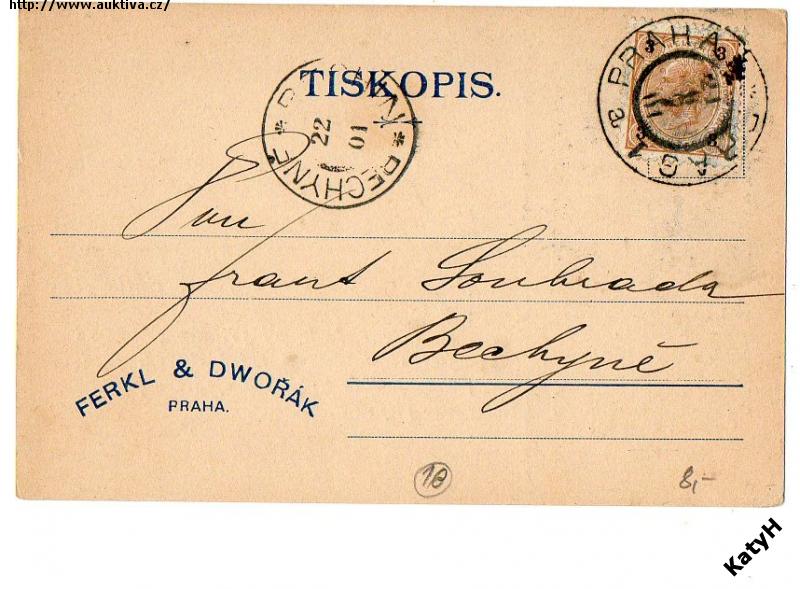 http://www.auktiva.cz/
TISKOPIS.
PRAHA
3
3
22
01
* BECHYNĚ *
Pan
Frant Soukrada
Bechyně
FERKL & DWOŘÁK
PRAHA.
10
8,-
KatyH